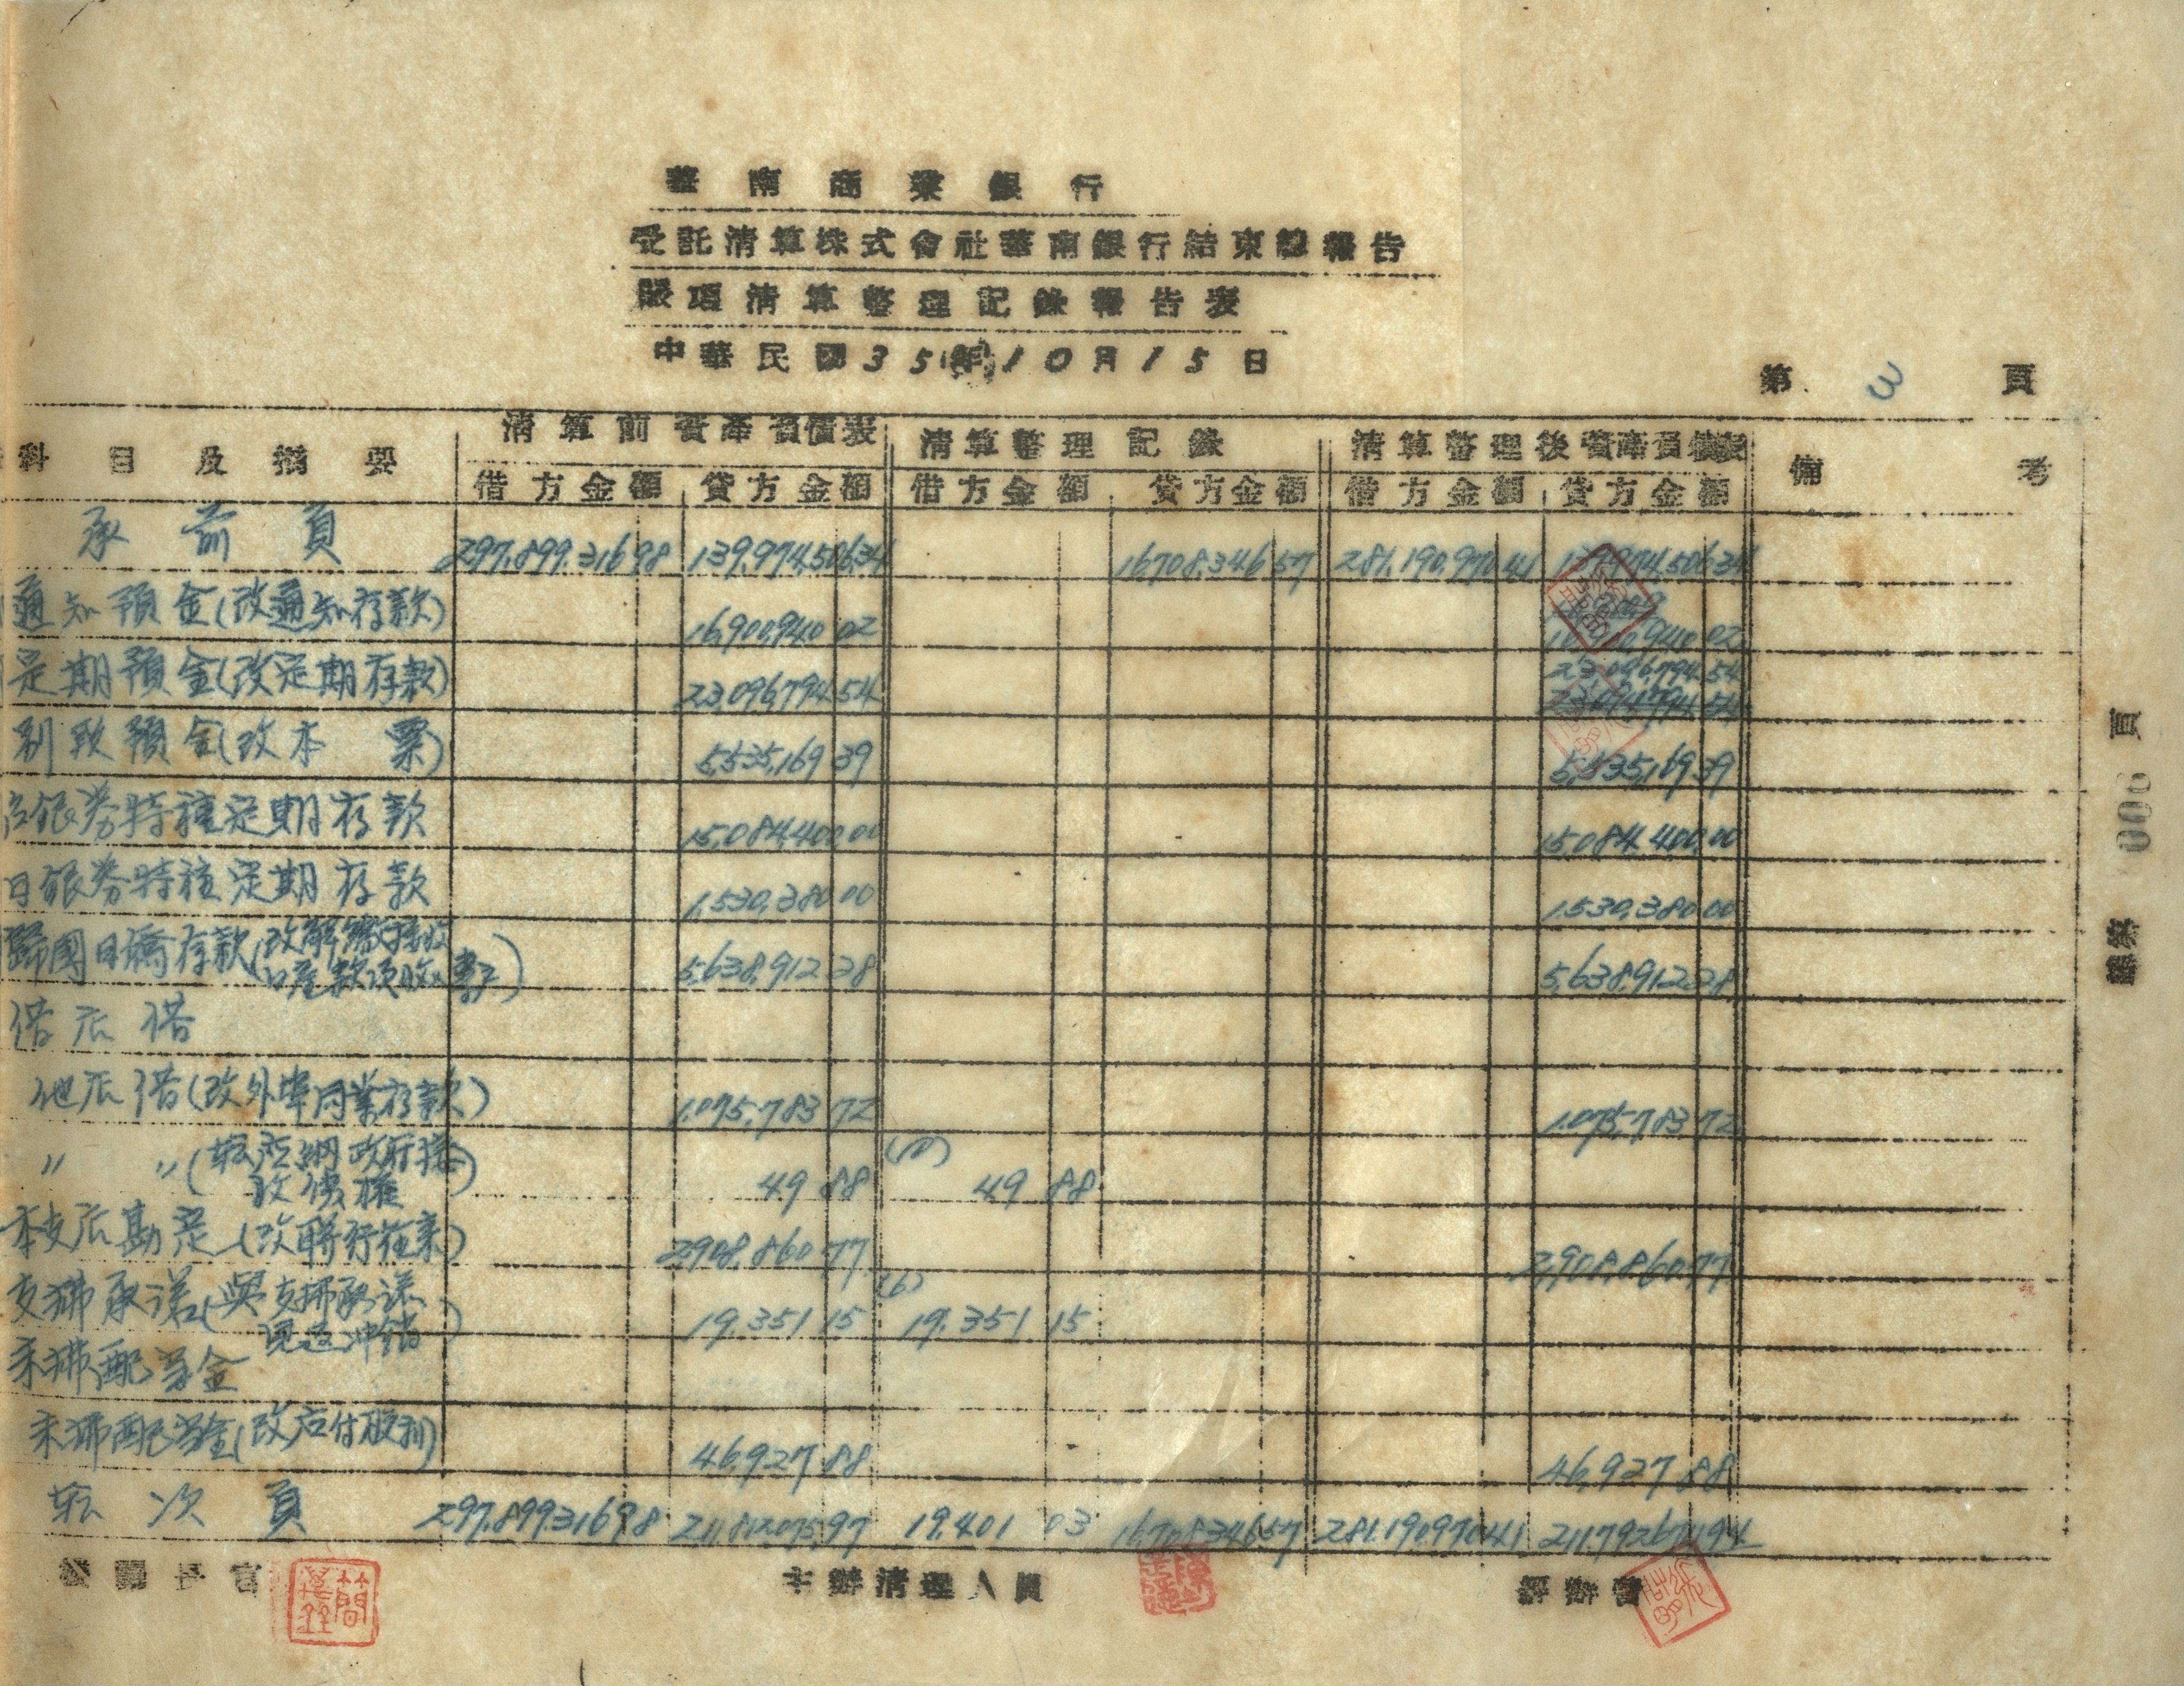 華南商業銀行
受託清算株式會社華南銀行結束總報告
賬項清算整理記錄報告表
中華民國35年10月15日
第 3 頁
科目及摘要 清算前資產負債表 清算整理記錄 清算整理後資產負債表 備考
借方金額 貸方金額 借方金額 貸方金額 借方金額 貸方金額
承前頁 297,899,316 98 139,974,506 34 16,708,346 57 281,190,970 41 139,974,506 34
通知預金(改通知存款) 16,900,940 02 16,900,940 02
定期預金(改定期存款) 23,096,794 54 23,096,794 54
別段預金(改本票) 5,535,169 39 5,535,169 39
台銀券特種定期存款 15,084,400 00 15,084,400 00
日銀券特種定期存款 1,530,380 00 1,530,380 00
歸國日僑存款(改解繳接收日產款項收據) 5,638,912 28 5,638,912 28
借店借
他店借(改外埠同業存款) 1,075,783 72 1,075,783 72
〃 〃(轉產網政府接收債權) 49 88 49 88
本支店勘定(改聯行往來) 2,908,860 77 2,908,860 77
支拂承諾(與支拂承諾見返沖銷) 19,351 15 (6) 19,351 15
未拂配當金
未拂配當金(改应付股利) 46,927 88 46,927 88
転次頁 297,899,316 98 211,812,075 97 19,401 03 16,708,346 57 281,190,970 41 211,792,674 94
機關長官 主辦清理人員 經辦員
檔案 006 頁